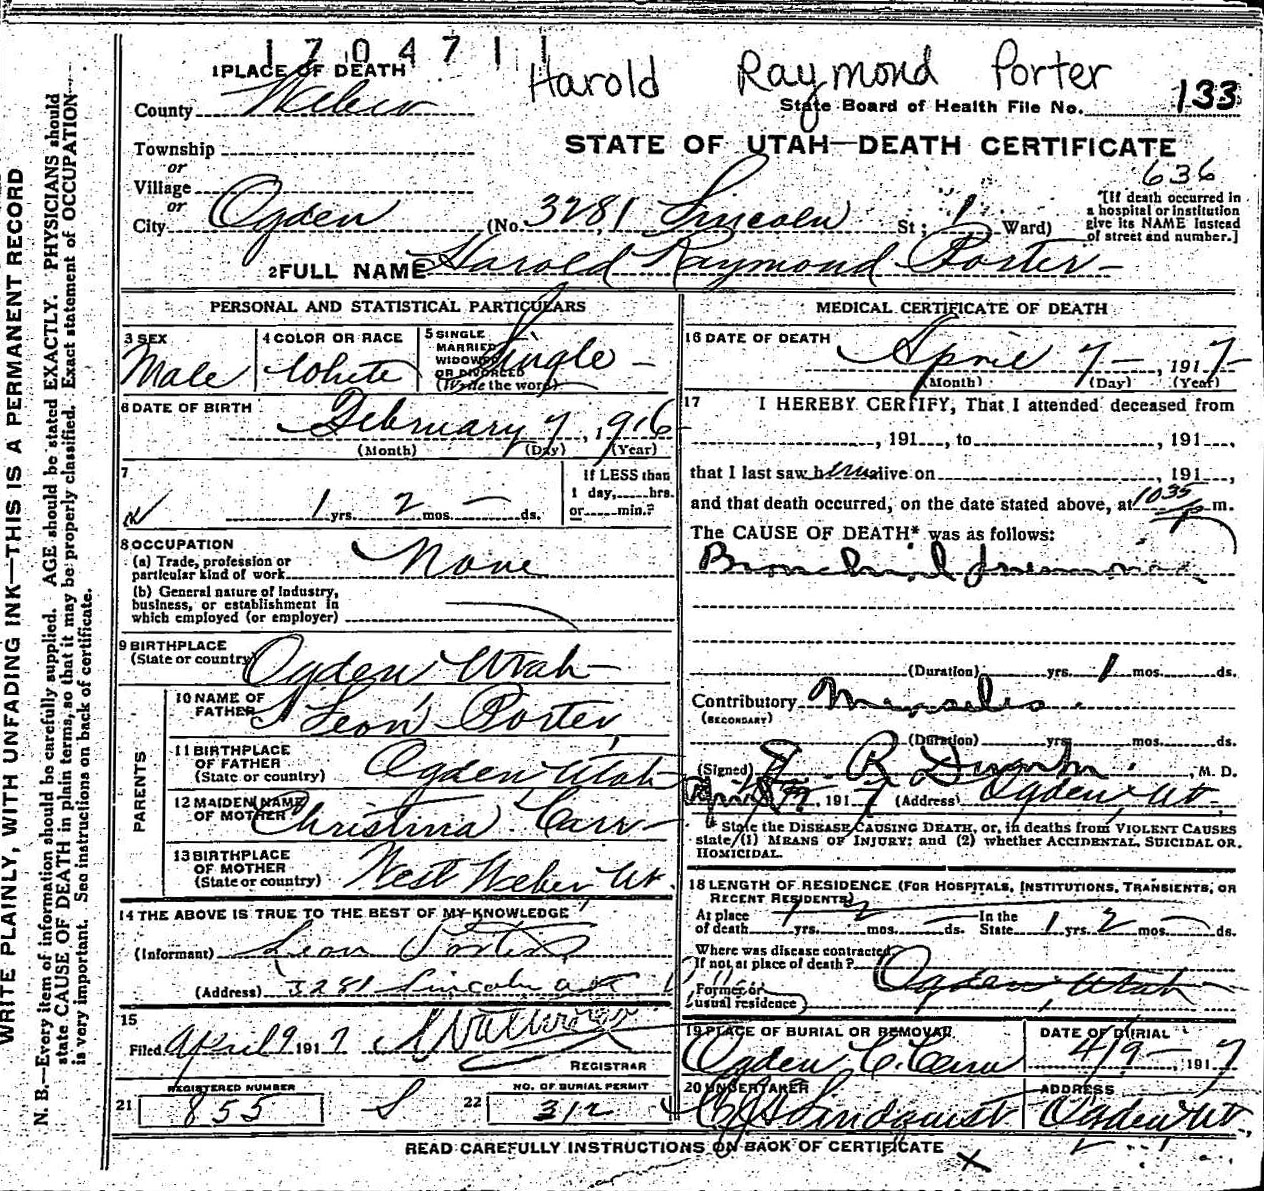 1 7 0 4 7 1 1
Harold Raymond Porter
1 PLACE OF DEATH
County Weber
State Board of Health File No. 133
Township
or
Village
or
City Ogden
STATE OF UTAH—DEATH CERTIFICATE
636
(No. 3281 Lincoln St; 5 Ward)
[If death occurred in
a hospital or institution
give its NAME instead
of street and number.]
2 FULL NAME Harold Raymond Porter
PERSONAL AND STATISTICAL PARTICULARS
3 SEX
Male
4 COLOR OR RACE
White
5 SINGLE
MARRIED
WIDOWED
OR DIVORCED
(Write the word)
Single
6 DATE OF BIRTH
February 7, 1916
(Month) (Day) (Year)
7
1 yrs. 2 mos. — ds.
If LESS than
1 day, hrs.
or min.?
8 OCCUPATION
(a) Trade, profession or
particular kind of work None
(b) General nature of industry,
business, or establishment in
which employed (or employer)
9 BIRTHPLACE
(State or country) Ogden Utah
PARENTS
10 NAME OF
FATHER Leon Porter
11 BIRTHPLACE
OF FATHER
(State or country) Ogden Utah
12 MAIDEN NAME
OF MOTHER Christina Carr
13 BIRTHPLACE
OF MOTHER
(State or country) West Weber Ut.
14 THE ABOVE IS TRUE TO THE BEST OF MY KNOWLEDGE
(Informant) Leon Porter
(Address) 3281 Lincoln ave
15
Filed April 9 1917
REGISTRAR
21 REGISTERED NUMBER
855
S
22 NO. OF BURIAL PERMIT
312
MEDICAL CERTIFICATE OF DEATH
16 DATE OF DEATH
April 7 — , 1917
(Month) (Day) (Year)
17 I HEREBY CERTIFY, That I attended deceased from
, 191 , to , 191 ,
that I last saw him alive on , 191 ,
and that death occurred, on the date stated above, at 1035 p m.
The CAUSE OF DEATH* was as follows:
Bronchial Pneumonia
(Duration) yrs. 1 mos. ds.
Contributory Measles.
(SECONDARY)
(Duration) yrs. mos. ds.
(Signed) E. R. , M. D.
April , 1917 (Address) Ogden, Ut.
* State the DISEASE CAUSING DEATH, or, in deaths from VIOLENT CAUSES
state (1) MEANS OF INJURY; and (2) whether ACCIDENTAL, SUICIDAL OR.
HOMICIDAL.
18 LENGTH OF RESIDENCE (FOR HOSPITALS, INSTITUTIONS, TRANSIENTS, OR
RECENT RESIDENTS)
At place
of death 1 yrs. 2 mos. — ds. In the
State 1 yrs. 2 mos. — ds.
Where was disease contracted
if not at place of death? Ogden Utah
Former or
usual residence
19 PLACE OF BURIAL OR REMOVAL
Ogden C. Cem
DATE OF BURIAL
4/9 — , 1917
20 UNDERTAKER
Lindquist
ADDRESS
Ogden Ut.
READ CAREFULLY INSTRUCTIONS ON BACK OF CERTIFICATE
WRITE PLAINLY, WITH UNFADING INK—THIS IS A PERMANENT RECORD
N. B.—Every item of information should be carefully supplied. AGE should be stated EXACTLY. PHYSICIANS should
state CAUSE OF DEATH in plain terms, so that it may be properly classified. Exact statement of OCCUPATION
is very important. See instructions on back of certificate.